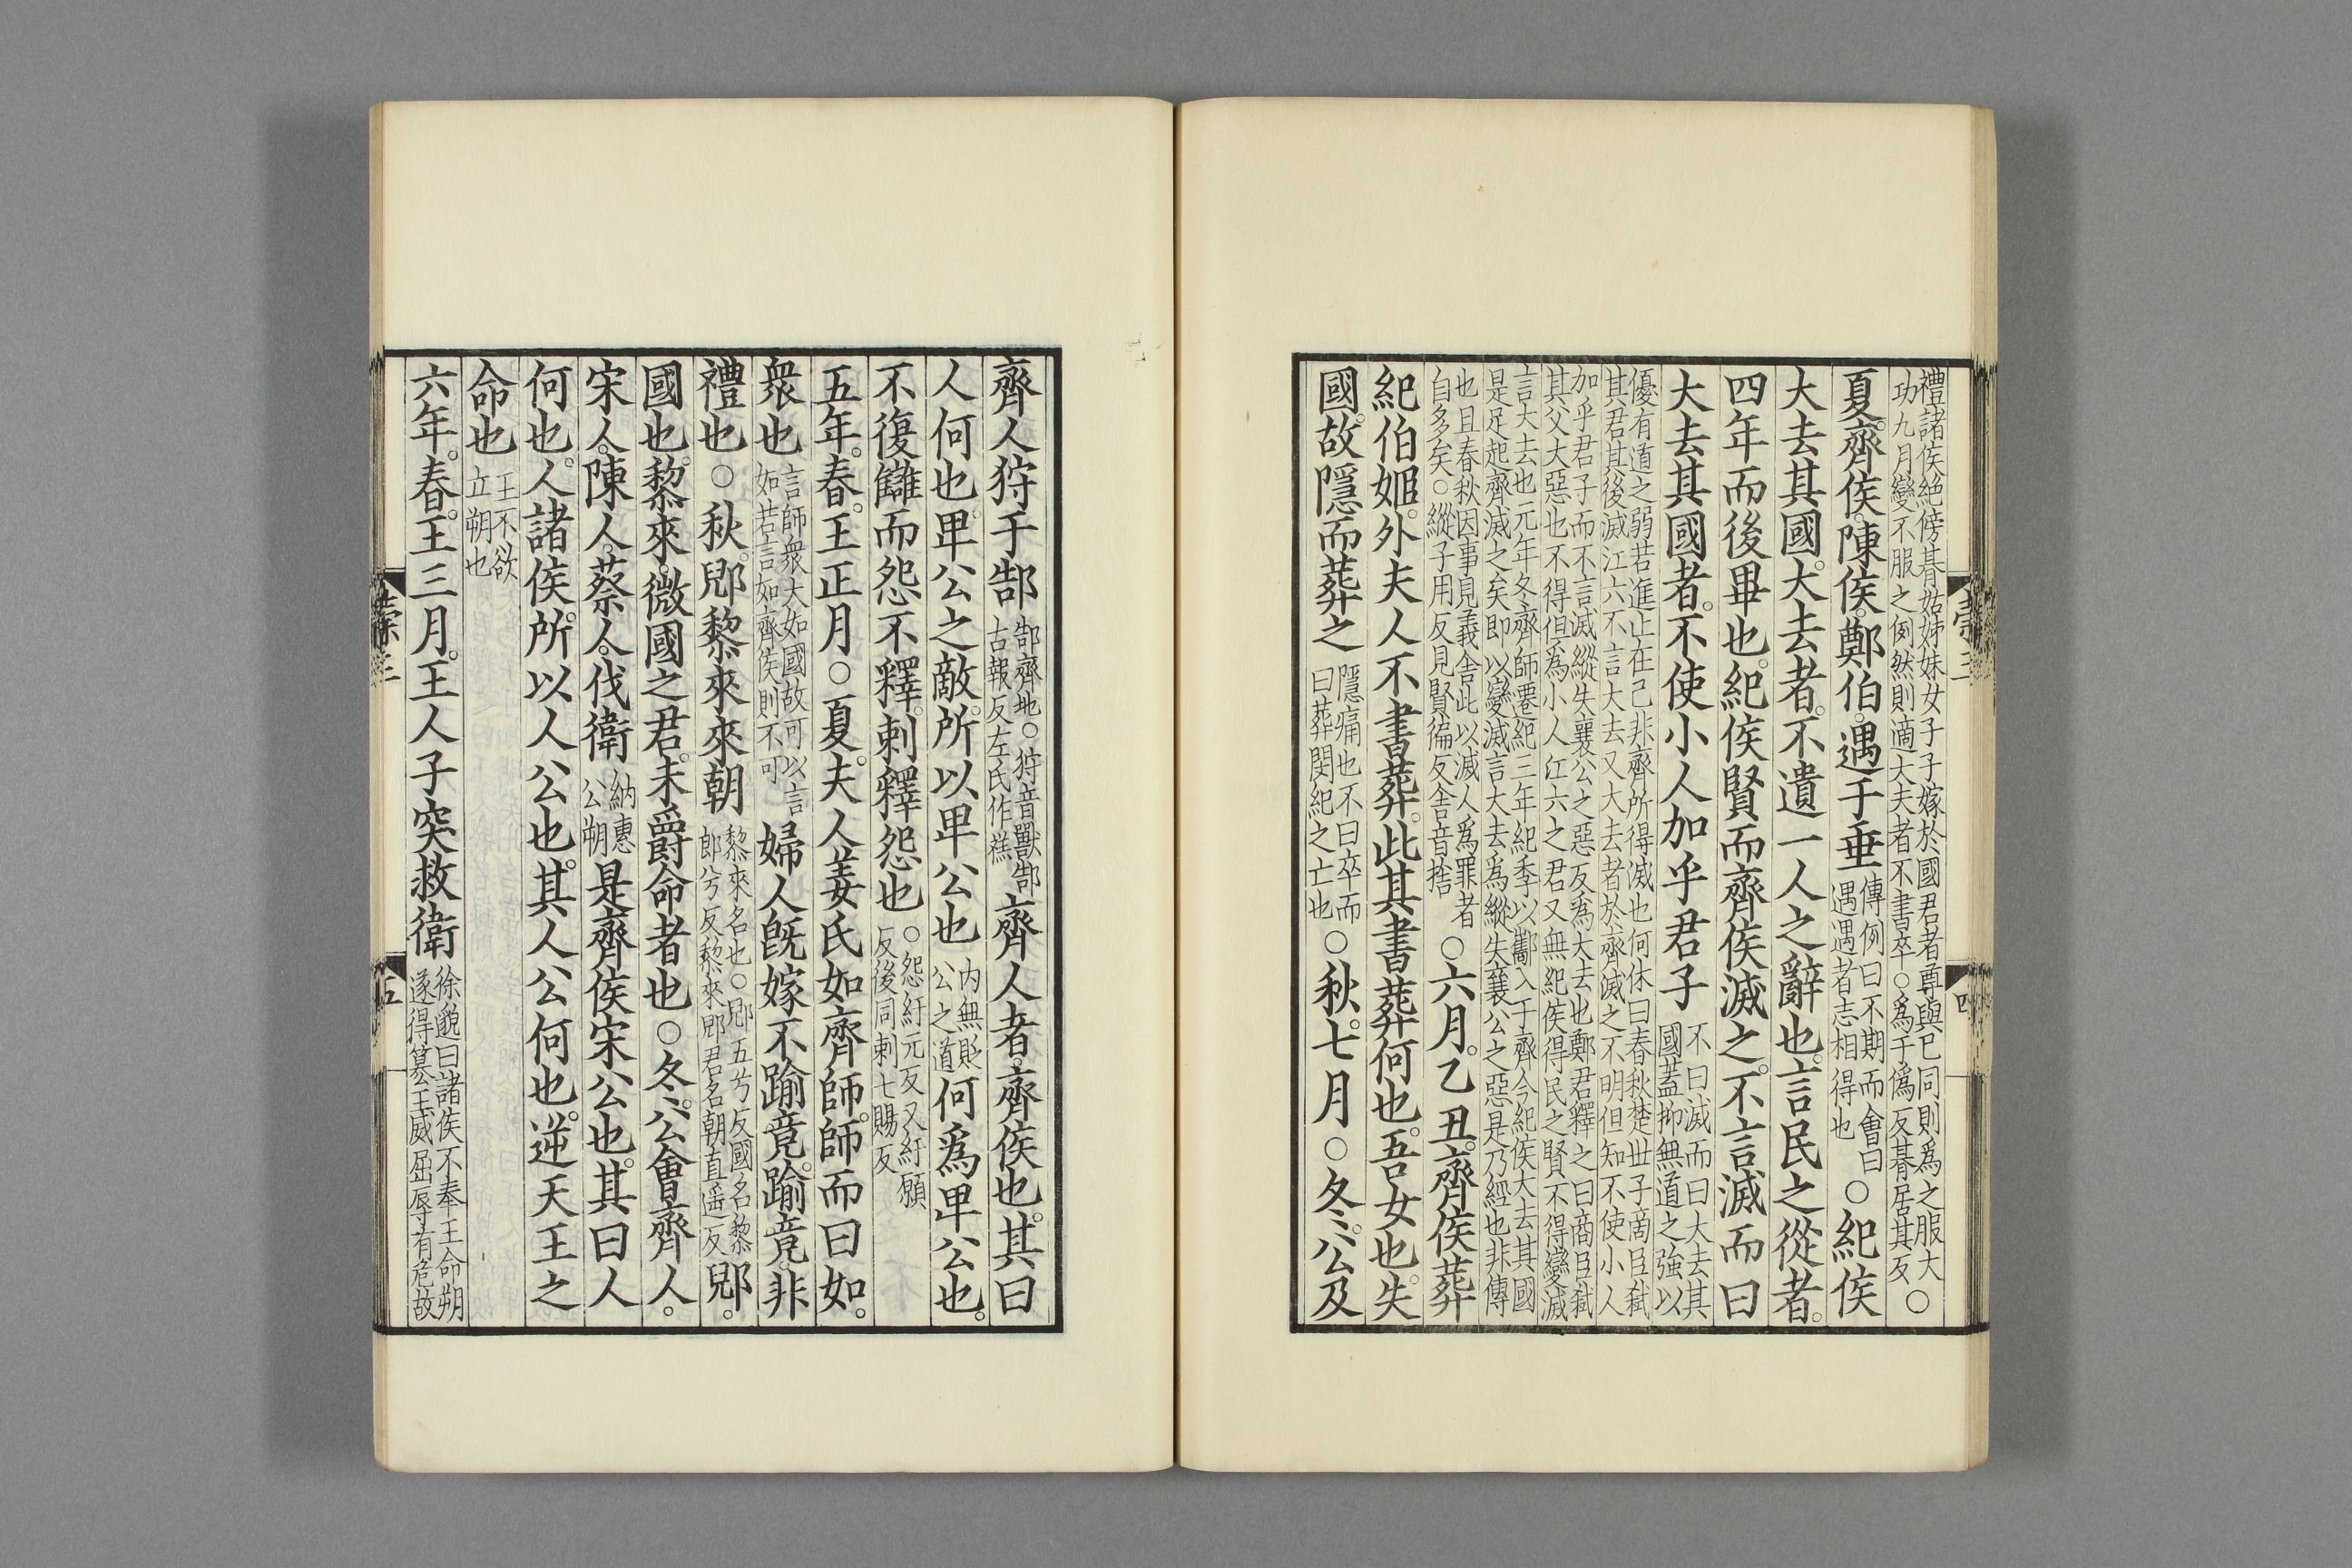 禮諸侯絕傍朞姑姊妹女子子嫁於國君者尊與已同則爲之服大
功九月變不服之例然則適大夫者不書卒○爲于僞反朞居其反○
夏齊侯陳侯鄭伯遇于垂傳例曰不期而會曰
遇遇者志相得也○紀侯
大去其國大去者不遺一人之辭也言民之從者
四年而後畢也紀侯賢而齊侯滅之不言滅而曰
大去其國者不使小人加乎君子不曰滅而曰大去其
國蓋抑無道之強以
優有道之弱若進止在己非齊所得滅也何休曰春秋楚世子商臣弒
其君其後滅江六不言大去又大去者於齊滅之不明但知不使小人
加乎君子而不言滅縱失襄公之惡反爲大去也鄭君釋之曰商臣弒
其父大惡也不得但爲小人江六之君又無紀侯得民之賢不得變滅
言大去也元年冬齊師遷紀三年紀季以酅入于齊今紀侯大去其國
是足起齊滅之矣即以變滅言大去爲縱失襄公之惡是乃經也非傳
也且春秋因事見義舍此以滅人爲罪者
自多矣○縱子用反見賢徧反舍音捨○六月乙丑齊侯葬
紀伯姬外夫人不書葬此其書葬何也吾女也失
國故隱而葬之隱痛也不曰卒而
曰葬閔紀之亡也○秋七月○冬公及
齊人狩于郜郜齊地○狩音獸郜
古報反左氏作禚齊人者齊侯也其曰
人何也卑公之敵所以卑公也內無貶
公之道何爲卑公也
不復讎而怨不釋刺釋怨也○怨紆元反又紆願
反後同刺七賜反
五年春王正月○夏夫人姜氏如齊師師而曰如
衆也言師衆大如國故可以言
如若言如齊侯則不可婦人既嫁不踰竟踰竟非
禮也○秋郳黎來來朝黎來名也○郳五兮反國名黎
郎兮反黎來郳君名朝直遥反郳
國也黎來微國之君未爵命者也○冬公會齊人
宋人陳人蔡人伐衞納惠
公朔是齊侯宋公也其曰人
何也人諸侯所以人公也其人公何也逆天王之
命也王不欲
立朔也
六年春王三月王人子突救衞徐邈曰諸侯不奉王命朔
遂得篡王威屈辱有危故